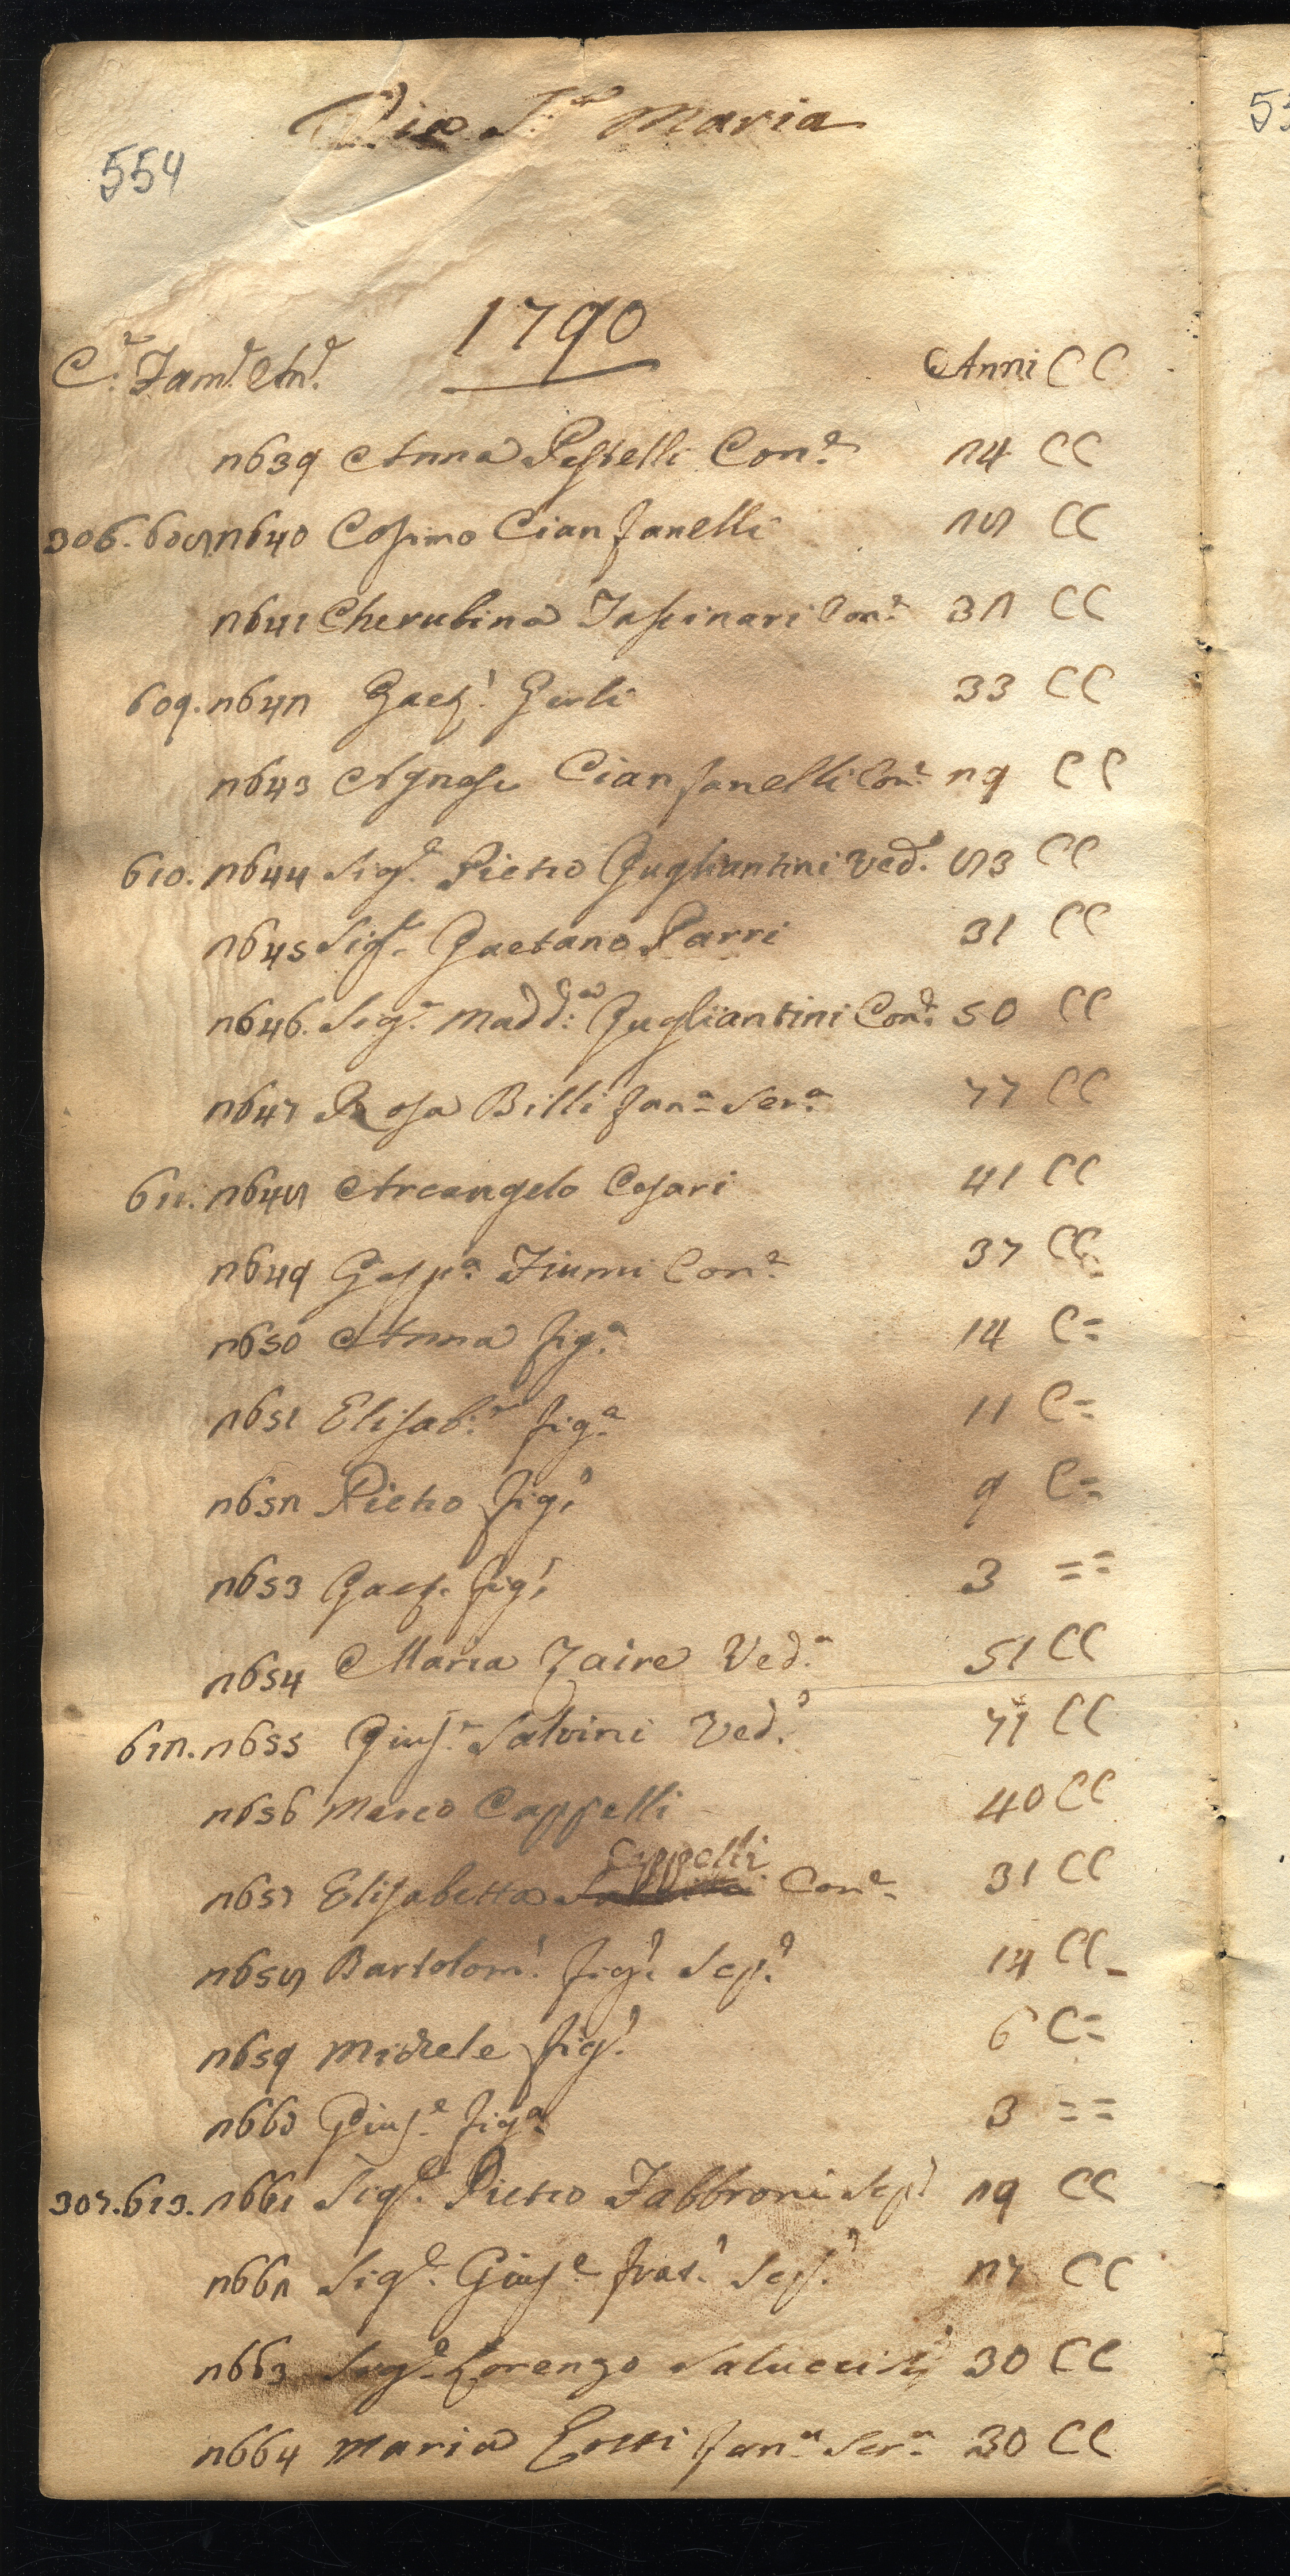 Via S.ta Maria
554
1790
C.e Fam.e An.e Anni CC
2639 Anna Pestelli Con.e 24 CC
306. 608. 2640 Cosimo Cianfanelli 28 CC
2641 Cherubina Con.e 32 CC
609. 2642 Gaet.o Gerli 33 CC
2643 Agnese Cianfanelli Con.e 29 CC
610. 2644 Sig.e Pietro Gugliantini Ved.o 83 CC
2645 Sig.e Gaetano Parri 31 CC
2646. Sig.a Madd.a Gugliantini Con.e 50 CC
2647 Rosa Billi fan.a Ser.a 77 CC
611. 2648 Arcangelo Cesari 41 CC
2649 Gesu.a Fiumi Con.e 37 CC
2650 Anna fig.a 14 C=
2651 Elisab.a fig.a 11 C=
2652 Pietro fig.o 9 C=
2653 Gaet. fig.o 3 ==
2654 Maria Zaire Ved.a 51 CC
612. 2655 Gius.e Salvini Ved.o 77 CC
2656 Marco Cappelli 40 CC
2657 Elisabetta Cappelli Con.e 31 CC
2658 Bartolom.o fig.o Scp.o 14 CC
2659 Michele fig.o 6 C=
2660 Gius.e fig.a 3 ==
307. 613. 2661 Sig.e Pietro Fabbroni Scp.o 29 CC
2662 Sig.e Gius.e frat.o Scp.o 27 CC
2663 Sig.e Lorenzo Salucci 30 CC
2664 Maria fan.a Ser.a 30 CC